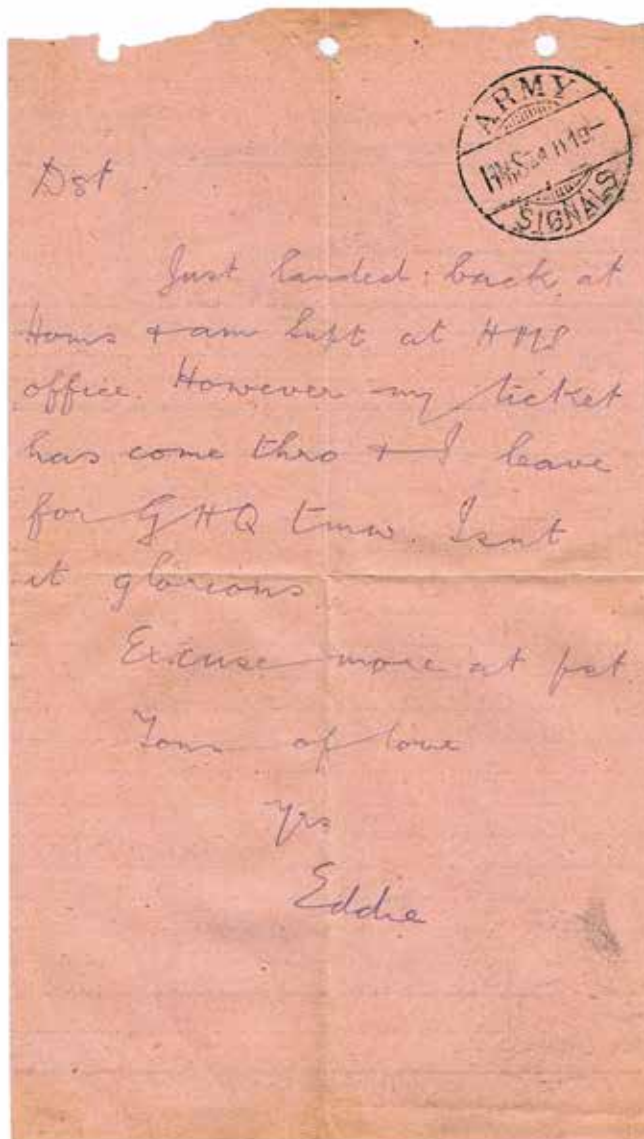 ARMY
HMS 24 11 19-
SIGNALS
Dst
Just landed back at
Homs + am left at HMS
office. However my ticket
has come thro + I leave
for GHQ tmw. Isnt
it glorious
Excuse more at pst.
Tons of love
Yrs
Eddie